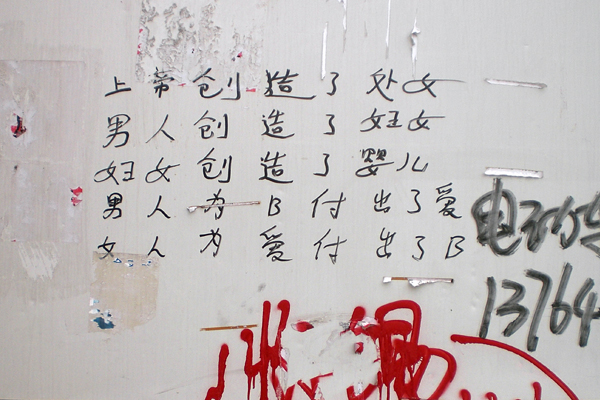 上帝创造了处女
男人创造了妇女
妇女创造了婴儿
男人为B付出了爱
女人为爱付出了B
电
13764